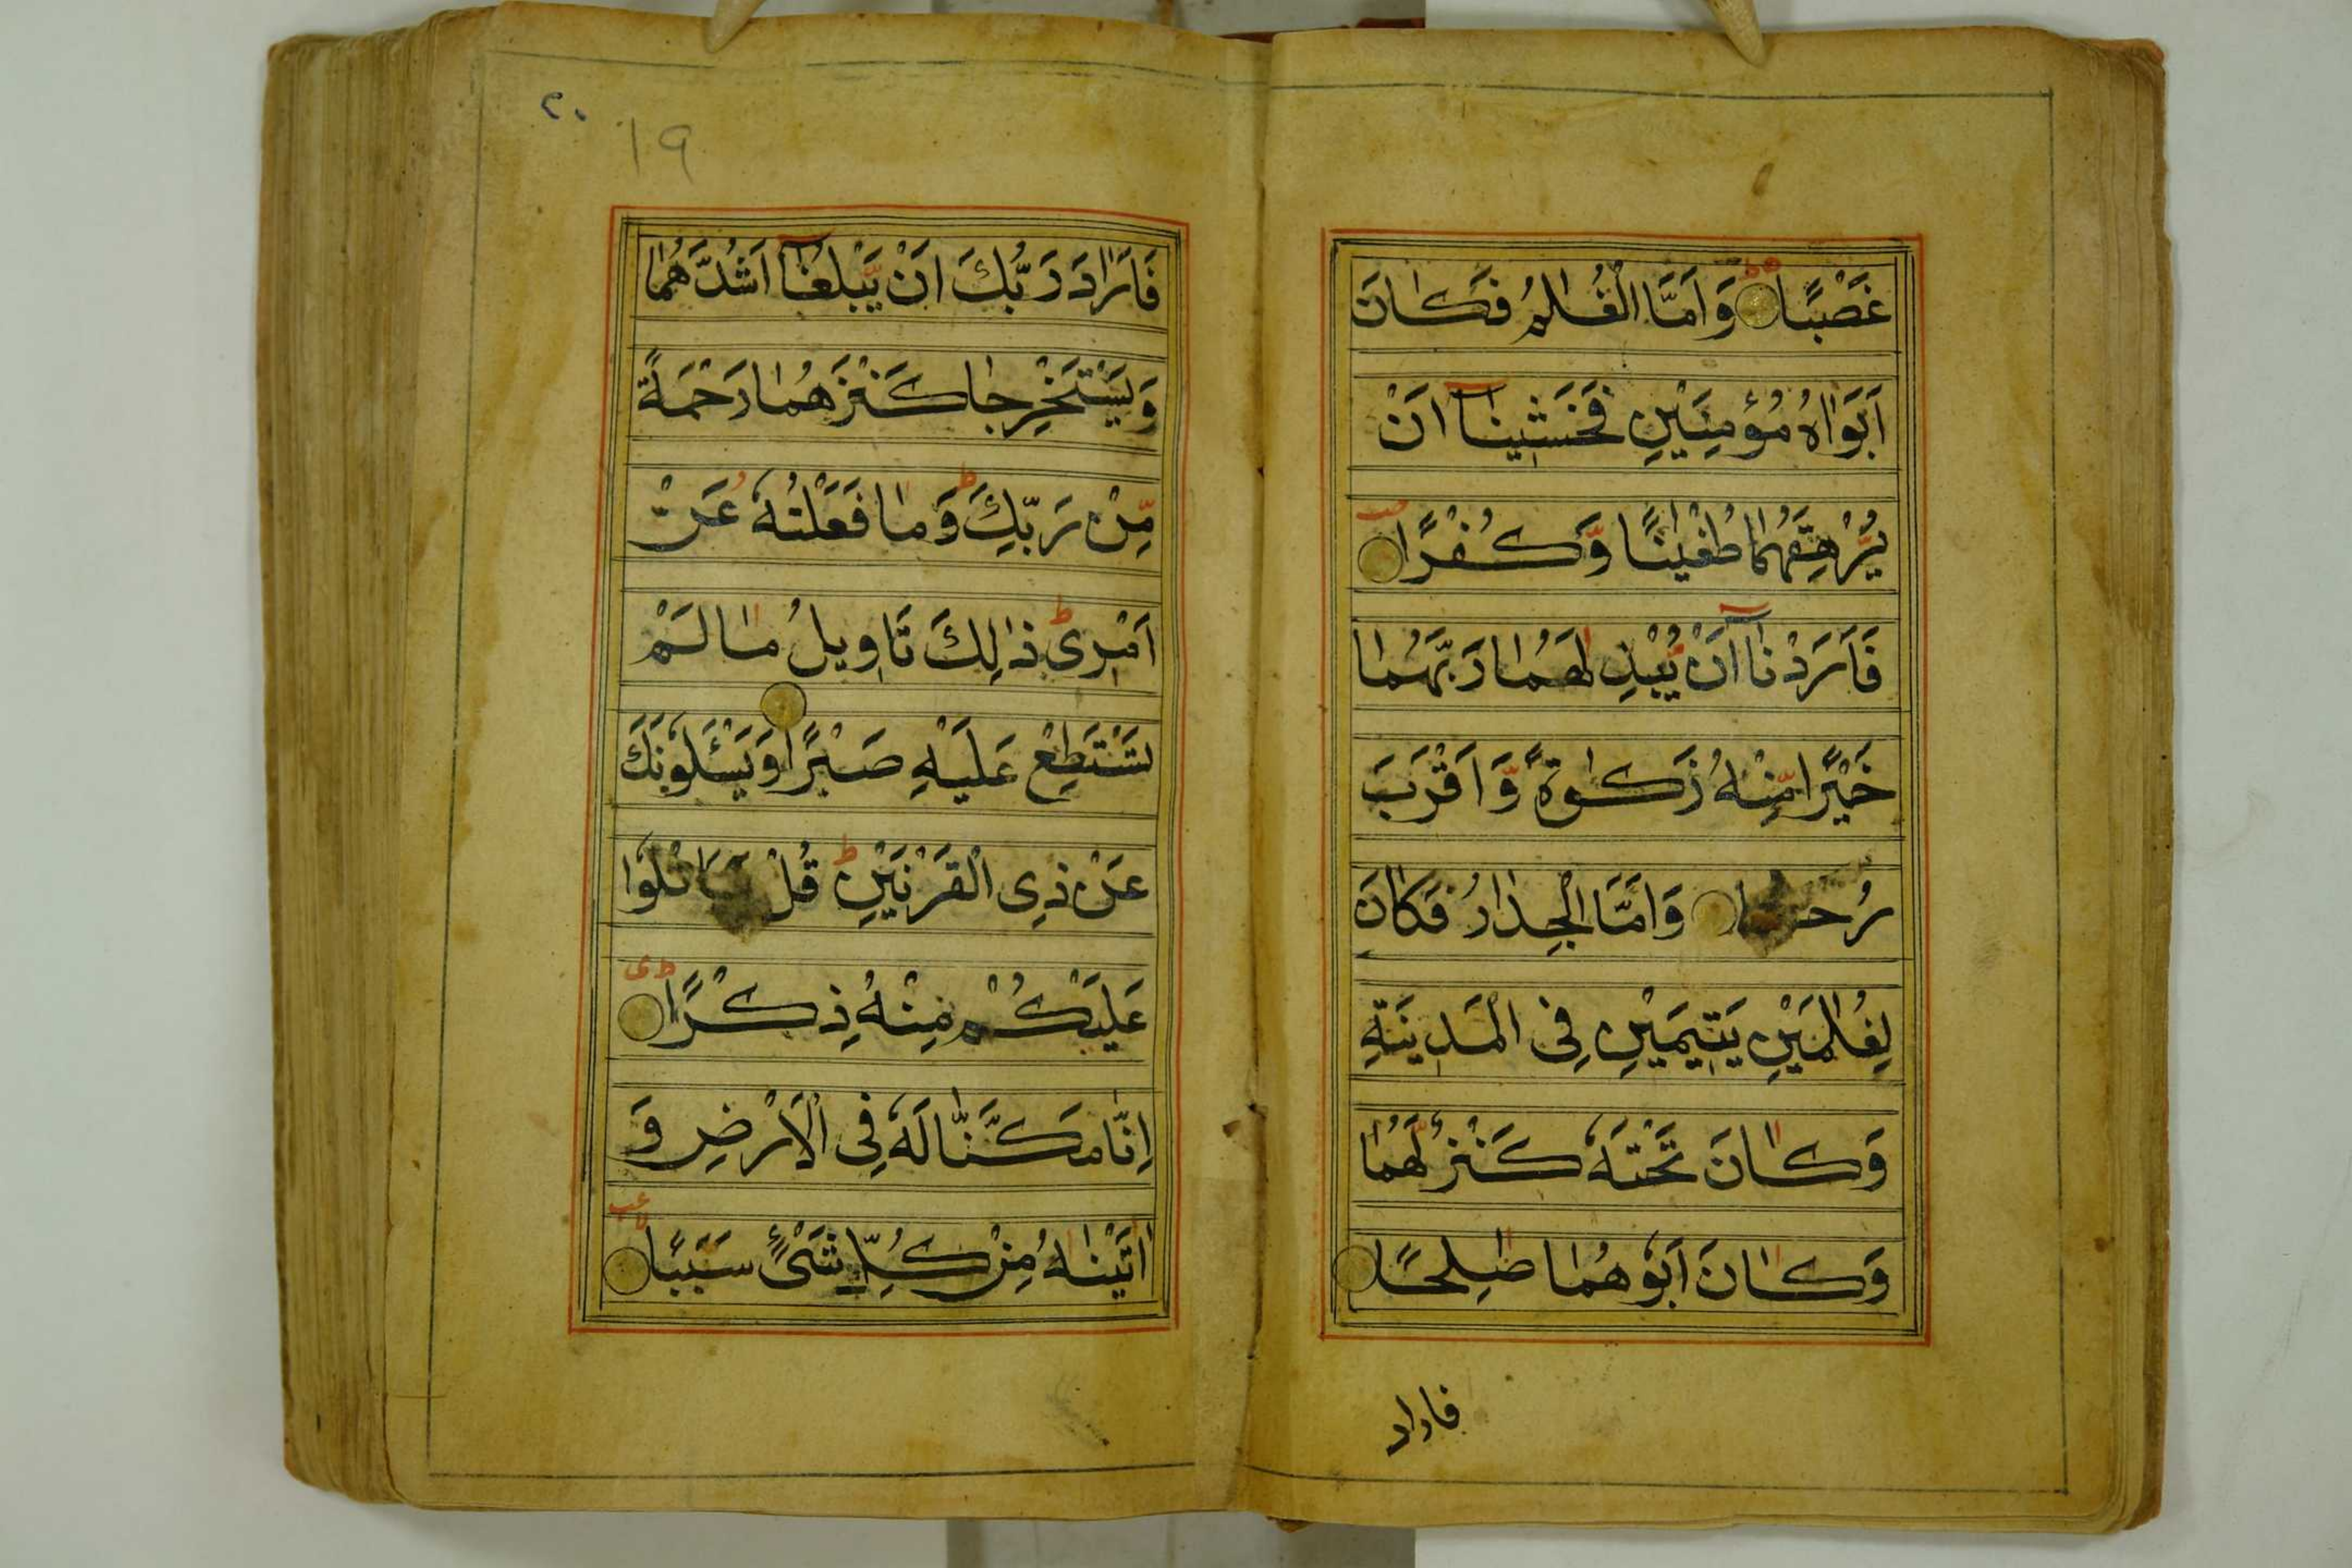 غَصْبًا وَاَمَّا الْغُلٰمُ فَكَانَ
اَبَوَاهُ مُؤْمِنَيْنِ فَخَشِيْنَآ اَنْ
يُّرْهِقَهُمَا طُغْيٰنًا وَّكُفْرًا
فَاَرَدْنَآ اَنْ يُّبْدِلَهُمَا رَبُّهُمَا
خَيْرًا مِّنْهُ زَكٰوةً وَّاَقْرَبَ
وَاَمَّا الْجِدَارُ فَكَانَ
لِغُلٰمَيْنِ يَتِيْمَيْنِ فِى الْمَدِيْنَةِ
وَكَانَ تَحْتَهٗ كَنْزٌ لَّهُمَا
وَكَانَ اَبُوْهُمَا صٰلِحًا
فاراد
٢٠
١٩
فَاَرَادَ رَبُّكَ اَنْ يَّبْلُغَآ اَشُدَّهُمَا
وَيَسْتَخْرِجَا كَنْزَهُمَا رَحْمَةً
مِّنْ رَبِّكَ وَمَا فَعَلْتُهٗ عَنْ
اَمْرِىْ ذٰلِكَ تَاْوِيلُ مَا لَمْ
تَسْتَطِعْ عَلَيْهِ صَبْرًا وَيَسْـَٔلُوْنَكَ
عَنْ ذِى الْقَرْنَيْنِ قُلْ سَاَتْلُوْا
عَلَيْكُمْ مِنْهُ ذِكْرًا
اِنَّا مَكَّنَّا لَهٗ فِى الْاَرْضِ وَ
اٰتَيْنٰهُ مِنْ كُلِّ شَىْءٍ سَبَبًا